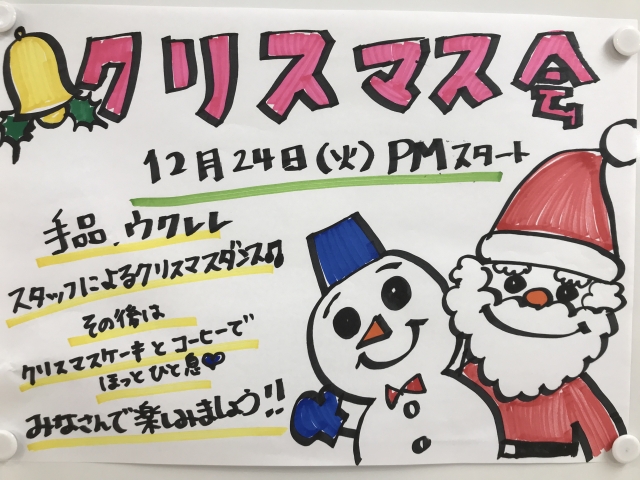 クリスマス会
12月24日(火)PMスタート
手品、ウクレレ
スタッフによるクリスマスダンス♫
その後は
クリスマスケーキとコーヒーで
ほっとひと息♥
みなさんで楽しみましょう!!